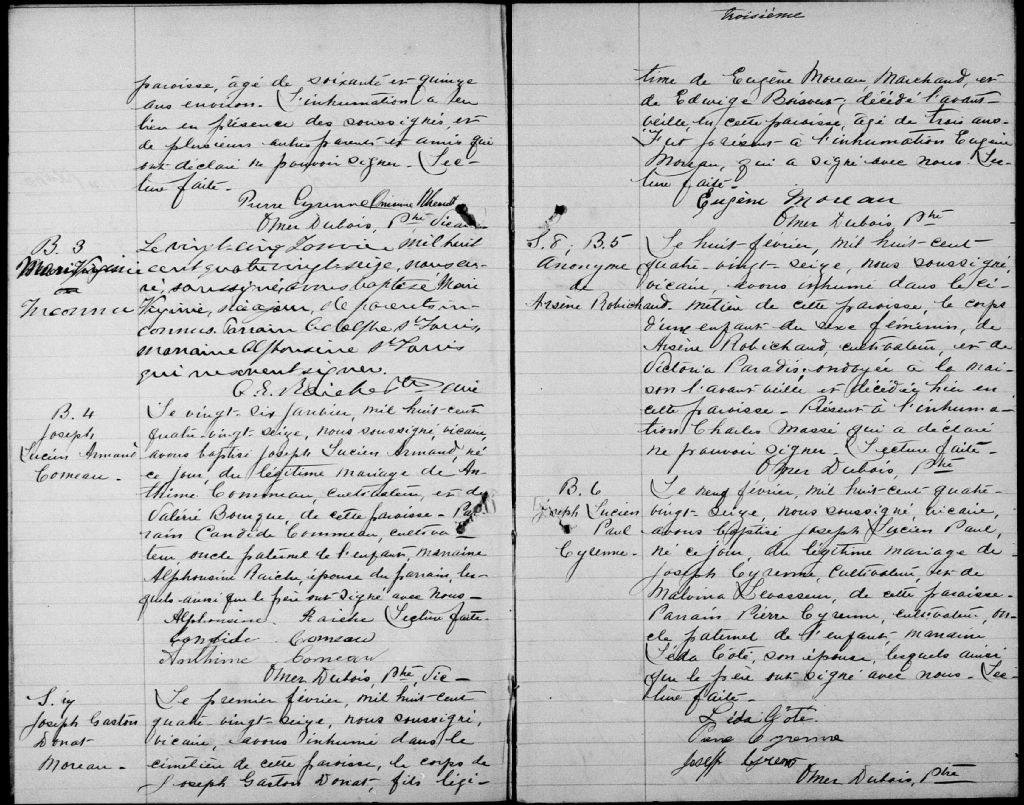 paroisse, âgé de soixante et quinze
ans environ. L'inhumation a eu
lieu en présence des soussignés et
de plusieurs autres parents et amis qui
ont déclaré ne pouvoir signer. Lec-
ture faite.
Pierre Cyrenne
Omer Dubois, Ptre Vicaire
B. 3
Marie Virginie
Inconnu
Le vingt-cinq Janvier mil huit
cent quatre vingt-seize, nous cu-
ré, soussigné, avons baptisé Marie
Virginie, née ce jour, de parents in-
connus. Parrain Adolphe St Louis,
marraine Alphonsine St Louis
qui ne savent signer.
Ptre curé
B. 4
Joseph
Lucien Armand
Comeau.
Le vingt-six janvier, mil huit-cent
quatre-vingt-seize, nous soussigné, vicaire,
avons baptisé Joseph Lucien Armand, né
ce jour, du légitime mariage de An-
thime Commeau, cultivateur, et de
Valérie Bourque, de cette paroisse. Par-
rain Candide Commeau, cultiva-
teur, oncle paternel de l'enfant, marraine
Alphonsine Raiche, épouse du parrain, les-
quels ainsi que le père ont signé avec nous.
Alphonsine Raiche Lecture faite
Candide Comeau
Anthime Comeau
Omer Dubois, Ptre, Vic-
S.
Joseph Gaston
Donat
Moreau.
Le premier février, mil huit-cent
quatre-vingt-seize, nous soussigné,
vicaire, avons inhumé dans le
cimetière de cette paroisse, le corps de
Joseph Gaston Donat, fils légi-
troisième
time de Eugène Moreau Marchand, et
de Edwige Boisvert, décédé l'avant-
veille en cette paroisse, âgé de trois ans.
Fut présent à l'inhumation Eugène
Moreau, qui a signé avec nous. Lec-
ture faite.
Eugène Moreau
Omer Dubois, Ptre
B. 5
Anonyme
de
Arsène Robichaud.
Le huit février, mil huit-cent-
quatre-vingt-seize, nous soussigné,
vicaire, avons inhumé dans le ci-
metière de cette paroisse, le corps
d'une enfant du sexe féminin, de
Arsène Robichaud, cultivateur, et de
Victoria Paradis, ondoyée à la mai-
son l'avant veille et décédée hier en
cette paroisse. Présent à l'inhuma-
tion Charles Massé qui a déclaré
ne pouvoir signer. Lecture faite.
Omer Dubois, Ptre
B. 6
Joseph Lucien
Paul
Cyrenne.
Le neuf février, mil huit-cent-quatre-
vingt-seize, nous soussigné, vicaire,
avons baptisé Joseph Lucien Paul,
né ce jour, du légitime mariage de
Joseph Cyrenne, cultivateur, et de
Malvina Levasseur, de cette paroisse.
Parrain Pierre Cyrenne, cultivateur, on-
cle paternel de l'enfant, marraine
Léda Côté, son épouse, lesquels ainsi
que le père ont signé avec nous. Lec-
ture faite.
Léda Côté
Pierre Cyrenne
Joseph Cyrenne
Omer Dubois, Ptre